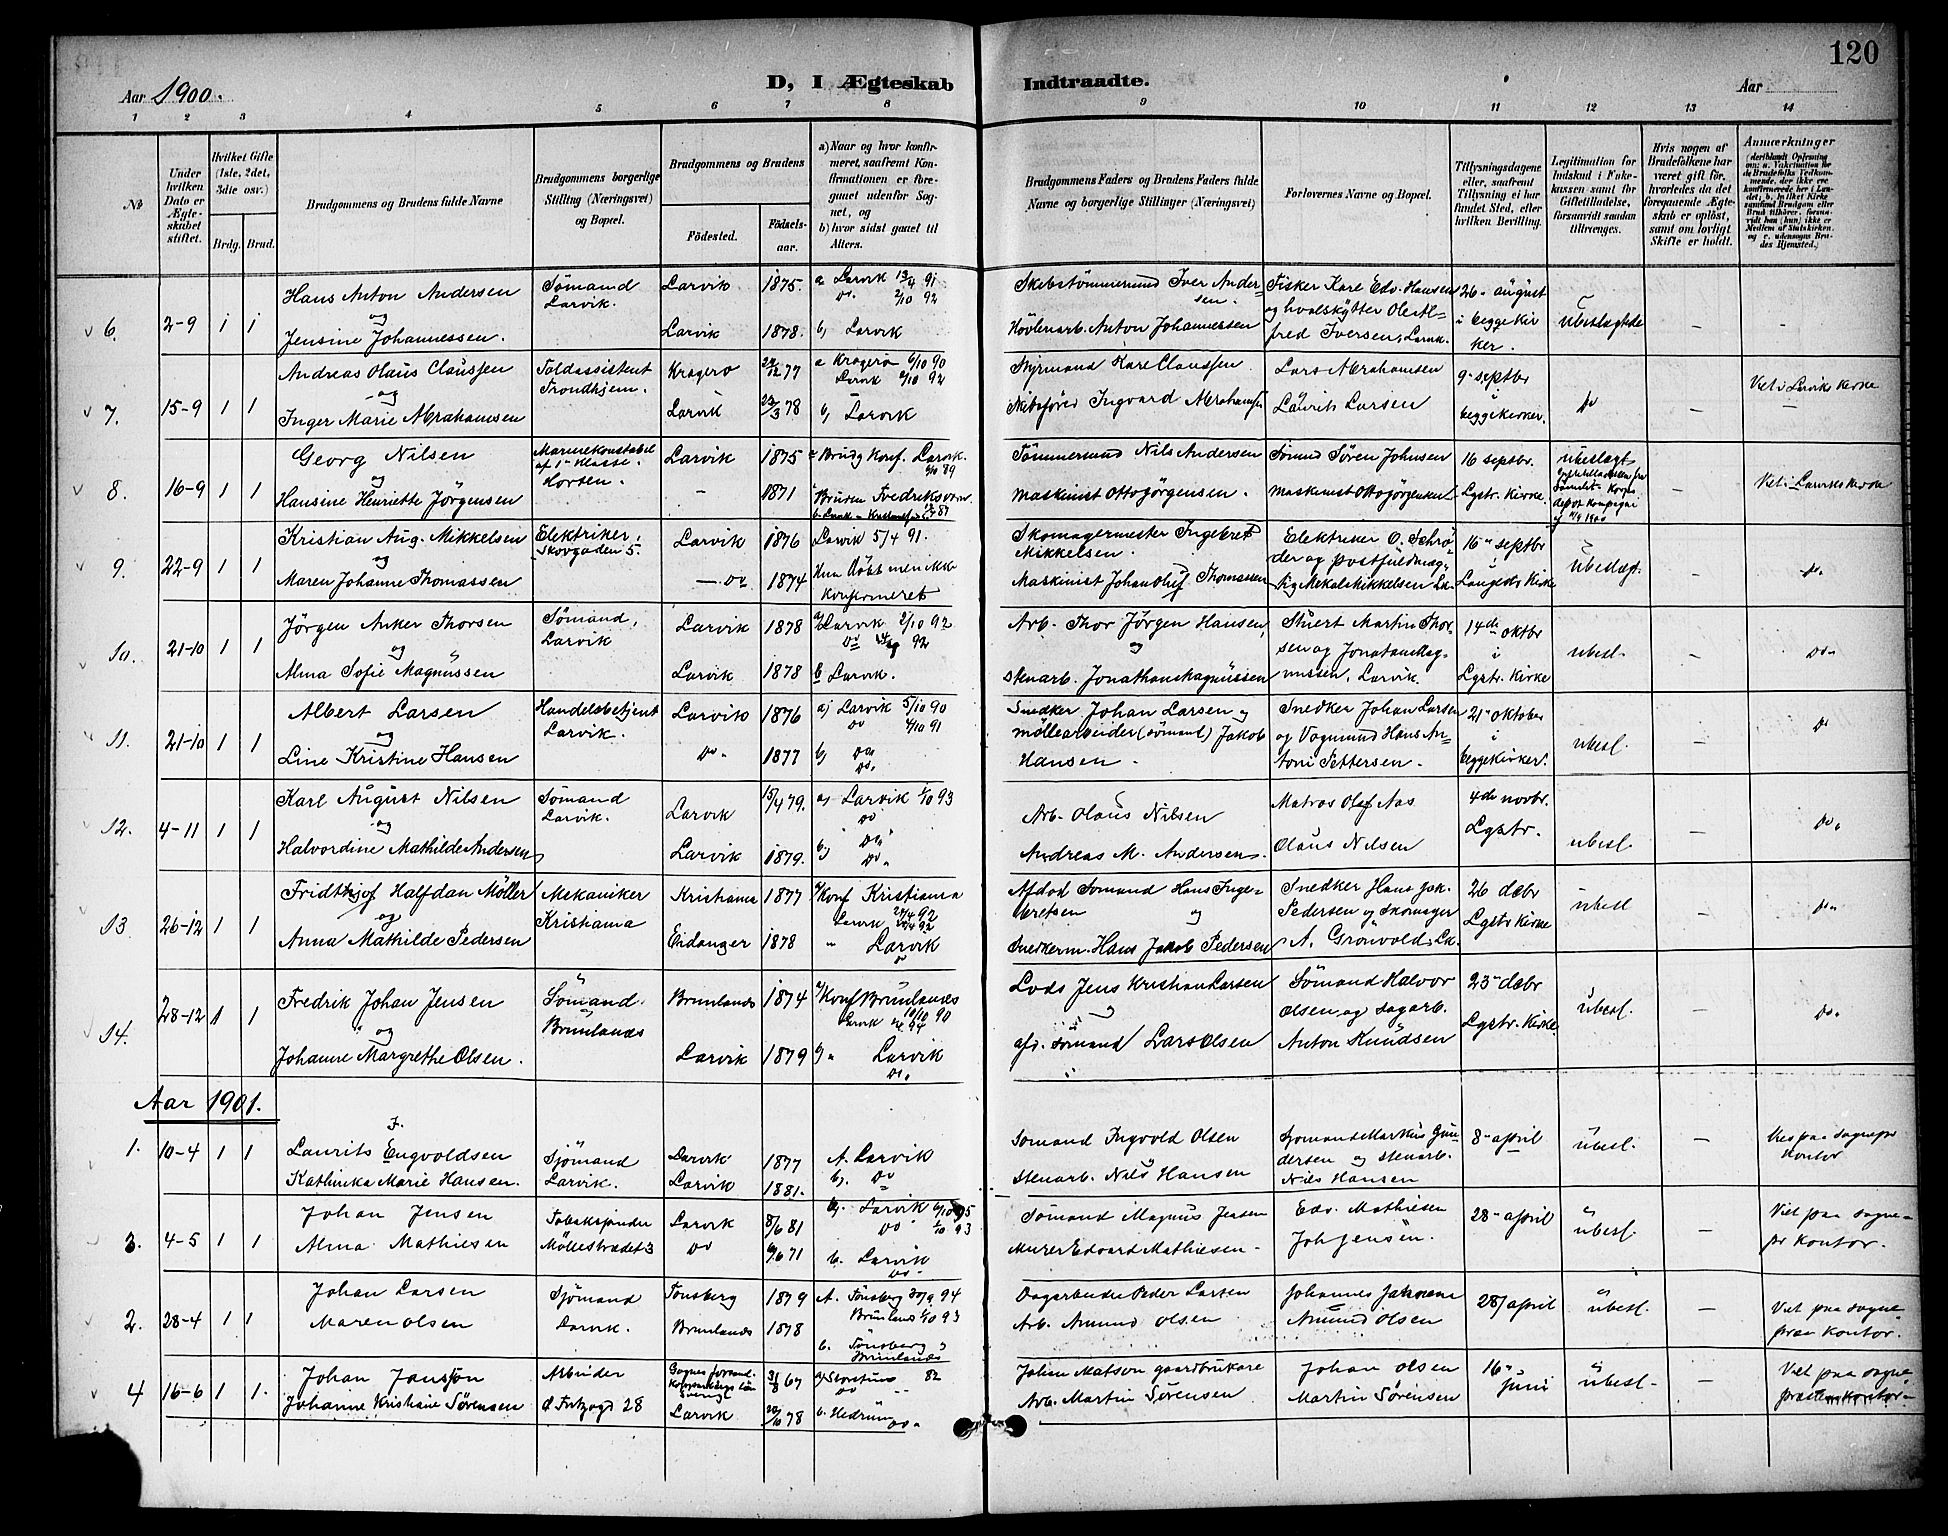 120
Aar 1900.
D, I Ægteskab Indtraadte.
Aar
1 2 3 4 5 6 7 8 9 10 11 12 13 14
No
Under hvilken Dato er Ægteskabet stiftet.
Hvilket Gifte (1ste, 2det, 3die osv.)
Brdg. Brud.
Brudgommens og Brudens fulde Navne
Brudgommens borgerlige Stilling (Næringsvei) og Bopæl.
Brudgommens og Brudens
Fødested.
Fødselsaar.
a) Naar og hvor konfirmeret, saafremt Konfirmationen er foregaaet udenfor Sognet, og
b) hvor sidst gaaet til Alters.
Brudgommens Faders og Brudens Faders fulde Navne og borgerlige Stillinger (Næringsvei)
Forlovernes Navne og Bopæl.
Tillysningsdagene eller, saafremt Tillysning ei har fundet Sted, efter hvilken Bevilling.
Legitimation for Indskud i Enkekassen samt for Giftetilladelse, forsaavidt saadan tiltrænges.
Hvis nogen af Brudefolkene har været gift før, hvorledes da det foregaaende Ægteskab er opløst, samt om lovligt Skifte er holdt.
Anmærkninger
6. 2-9 1 1 Hans Anton Andersen Sømand Larvik. Larvik 1875. a Larvik 19/4 91 Skibstømmermand Iver Andersen. Fisker Karl Edv. Hansen 26 august
og Do. 2/10 92 og hvalskytter Ole Alfred Iversen, Larvik. i begge kirker. ubeslægtede – –
Jensine Johannessen. Larvik 1878. b) Larvik Høvleriarb. Anton Johannessen
7. 15-9 1 1 Andreas Olaus Claussen Toldassistent Trondhjem. Kragerø 24/12 77 a Kragerø 6/10 90 Styrmand Karl Claussen Lars Abrahamsen 9 septbr
og Larvik 2/10 92 i Do – Viet i Larviks kirke
Inger Marie Abrahamsen Larvik 22/3 78 b) Larvik Skibsfører Ingvard Abrahamsen Laurits Larsen begge kirker.
8. 16-9 1 1 Georg Nilsen Marinekonstabel af 1ste Klasse. Horten. Larvik 1875 Brudg Konf. Larvik 6/10 89 Tømmermand Nils Andersen Sømd Søren Johnsen 16 septbr. ubeslægt
og – Viet i Larviks kirke
Hansine Henriette Jørgensen – 1871 Bruden Fredriksværn Maskinist Otto Jørgensen. Maskinist Otto Jørgensen Lgstr. kirke.
9. 22-9 1 1 Kristian Aug. Mikkelsen Elektriker, Skovgaden 5 Larvik 1876 Larvik 5/4 91. Skomagermester Ingebret Mikkelsen. Elektriker O. Schrøder og postfuldmægtig 16 septbr
og ubeslægt. – Do.
Maren Johanne Thomassen – Do 1874 Hun døbt men ikke Konfirmeret Maskinist Johan Oluf Thomassen Mikal Mikkelsen La. Langestr. Kirke
10. 21-10 1 1 Jørgen Anker Thorsen Sømand, Larvik Larvik 1878 a) Larvik 2/10 92 Arb. Thor Jørgen Hansen, Stuert Martin Thorsen og Jonatan Magnussen, Larvik. 14de oktbr
og Do 92 og i ubesl. – Do
Alma Sofie Magnussen Larvik 1878 b Larvik. Stenarb. Jonathan Magnussen Lgstr. Kirke
11. 21-10 1 1 Albert Larsen Handelsbetjent Larvik. Larvik 1876 a) Larvik 5/10 90 Snedker Johan Larsen og Snedker Johan Larsen 21 oktober
og Do 4/10 91 møllearbeider (sømand) Jakob Hansen. og Vognmand Hans Antoni Pettersen. i ubesl. – Do
Line Kristine Hansen Do 1877 b) Do Do. begge kirker.
12. 4-11 1 1 Karl August Nilsen Sømand Larvik. Larvik 15/4 79. a) Larvik 1/10 93 Arb. Olaus Nilsen Matros Olaf Aas 4de novbr.
og Do Lgstr. ubesl. – Do.
Halvordine Mathilde Andersen Larvik 1879. b) Do. Do. Andreas M. Andersen. Olaus Nilsen
13 26-12 1 1 Fridthjof Halfdan Møller Mekaniker Kristiania Kristiania 1877 a) Konf Kristiania Afdød Sømand Hans Ingebretsen Snedker Hans Jak. Pedersen og Skomager A. Grønvold, Lk. 26 decbr
og Larvik 24/4 92 og Lgstr. kirke ubesl – Do.
Anna Mathilde Pedersen Eidanger 1878 " Larvik Do Snekerm. Hans Jakob Pedersen
14. 28-12 1 1 Fredrik Johan Jensen Sømand. Brunlanes Brunlanes 1874 a) Konf Brunlanes 10/10 90 Lods Jens Kristian Larsen Sømand Halvor Olsen og sagarb. Anton Knudsen 23 decbr
og Larvik 94 Lgstr. kirke ubesl. – Do.
Johanne Margrethe Olsen. Larvik 1879 b) " Larvik Do. afd. sømand Lars Olsen
Aar 1901.
1. 10-4 1 1 Laurits J. Engvoldsen Sjømand Larvik. Larvik 1877 A. Larvik Sømand Ingvold Olsen Sjømand Markus Gundersen og stenarb. Nils Hansen 8 april ubesl. – Vies paa sognepr kontor
Kathinka Marie Hansen. Larvik 1881. b). Do Stenarb. Nils Hansen
3. 4-5 1 1 Johan Jensen Tobakspinder Møllestrædet 3 Larvik 8/6 81 a). Larvik 6/10 95 Sømand Magnus Jensen Edv. Mathiesen 28 april ubesl. – Viet paa sognepr kontor.
Alma Mathiesen Do 6/6 71 Do 1/10 93 b. Larvik Do. Murer Edvard Mathiesen. Joh Jensen.
2. 28-4 1 1 Johan Larsen Sjømand Larvik. Tønsberg 1879 A. Tønsberg 30/9 94 Dagarbeider Peder Larsen Johannes Jakobsen 28/april ubesl. – Viet paa sognepræs kontor.
Maren Olsen Brunlanes 1878 Brunlanes 1/10 93 b. Tønsberg, Brunlanes Arb. Amund Olsen Amund Olsen
4 16-6 1 1. Johan Jansson Arbeider Ø Fritzøgd 28 31/8 67 a) 82 Johan Matson gaardbrukare Johan Olsen 16 juni ubesl. – Viet paa sognepræstens kontor.
Johanne Kristiane Sørensen Larvik 20/10 78 b. Hedrum Do. Arb. Martin Sørensen Martin Sørensen